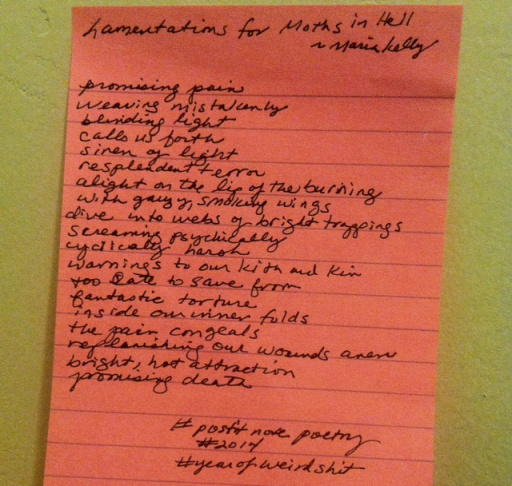 Lamentations for Moths in Hell
~ Maria Kelly
promising pain
weaving mistakenly
blinding light
calls us forth
siren of light
resplendent terror
alight on the lip of the burning
with gauzy, smoking wings
dive into webs of bright trappings
screaming psychically
cyclically harsh
warnings to our kith and kin
too late to save from
fantastic torture
inside our inner folds
the pain congeals
replenishing our wounds anew
bright, hot attraction
promising death
# postit note poetry
#2014
#yearofweirdshit